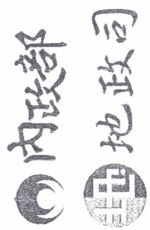 內政部
地政司